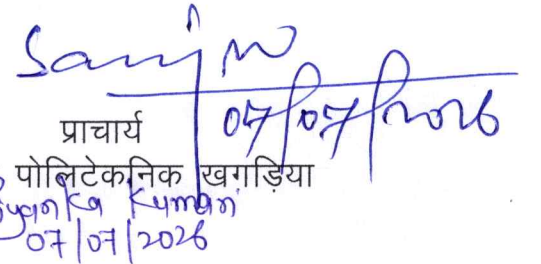 07/07/2026
प्राचार्य
पोलिटेकनिक खगड़िया
Kumari
07/07/2026